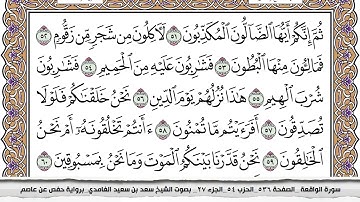 ثُمَّ إِنَّكُمْ أَيُّهَا ٱلضَّآلُّونَ ٱلْمُكَذِّبُونَ ٥١ لَأٓكِلُونَ مِن شَجَرٍ مِّن زَقُّومٍ ٥٢
فَمَالِـُٔونَ مِنْهَا ٱلْبُطُونَ ٥٣ فَشَٰرِبُونَ عَلَيْهِ مِنَ ٱلْحَمِيمِ ٥٤ فَشَٰرِبُونَ
شُرْبَ ٱلْهِيمِ ٥٥ هَٰذَا نُزُلُهُمْ يَوْمَ ٱلدِّينِ ٥٦ نَحْنُ خَلَقْنَٰكُمْ فَلَوْلَا
تُصَدِّقُونَ ٥٧ أَفَرَءَيْتُم مَّا تُمْنُونَ ٥٨ ءَأَنتُمْ تَخْلُقُونَهُۥٓ أَمْ نَحْنُ
ٱلْخَٰلِقُونَ ٥٩ نَحْنُ قَدَّرْنَا بَيْنَكُمُ ٱلْمَوْتَ وَمَا نَحْنُ بِمَسْبُوقِينَ ٦٠
سورة الواقعة _الصفحة ٥٣٦ _الحزب ٥٤ _الجزء ٢٧_ بصوت الشيخ سعد بن سعيد الغامدي_ برواية حفص عن عاصم